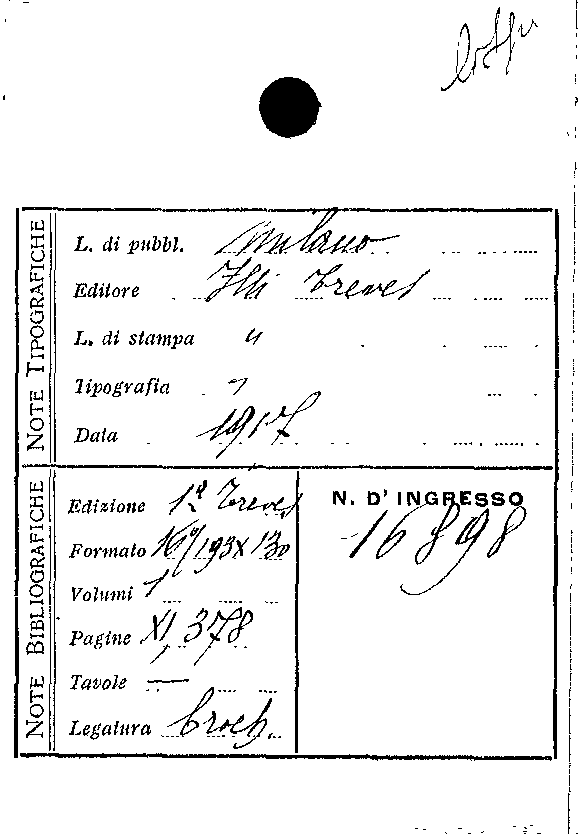 NOTE TIPOGRAFICHE
L. di pubbl. Milano
Editore Flli Treves
L. di stampa "
Tipografia "
Data 1917
NOTE BIBLIOGRAFICHE
Edizione 1ª Treves
Formato 16º/193X130
Volumi 1
Pagine XI, 378
Tavole —
Legatura broch.
N. D'INGRESSO
16898